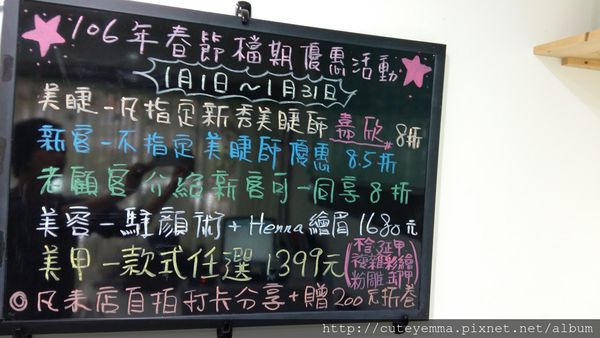 106年春節檔期優惠活動
1月1日~1月31日
美睫-凡指定新秀美睫師 嘉欣 8折
新客-不指定美睫師優惠 8.5折
老顧客 介紹新客可一同享8折
美容-駐顏術+Henna繪眉 1680元
美甲-款式任選1399元(不含延甲 複雜彩繪 粉雕 卸甲)
◎凡來店自拍打卡分享+贈200元折卷
http://cuteyemma.pixnet.net/album